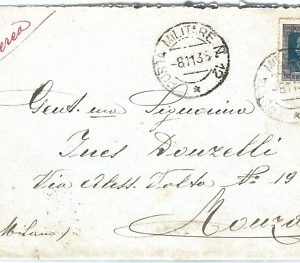 Aerea
POSTA MILITARE N. 12
-8.11.35
Gent.ma Signorina
Ines Donzelli
Via Aless. Volta N° 19
Monza
(Milano)